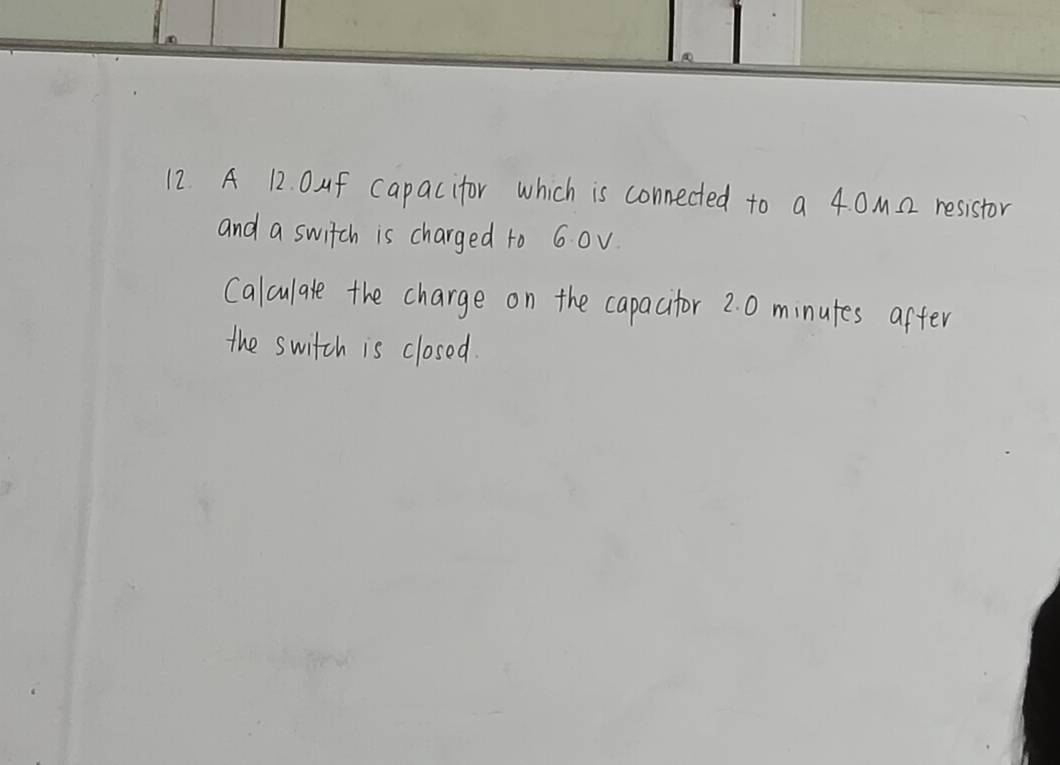 12. A 12.0μf capacitor which is connected to a 4.0MΩ resistor
and a switch is charged to 6.0V.
Calculate the charge on the capacitor 2.0 minutes after
the switch is closed.